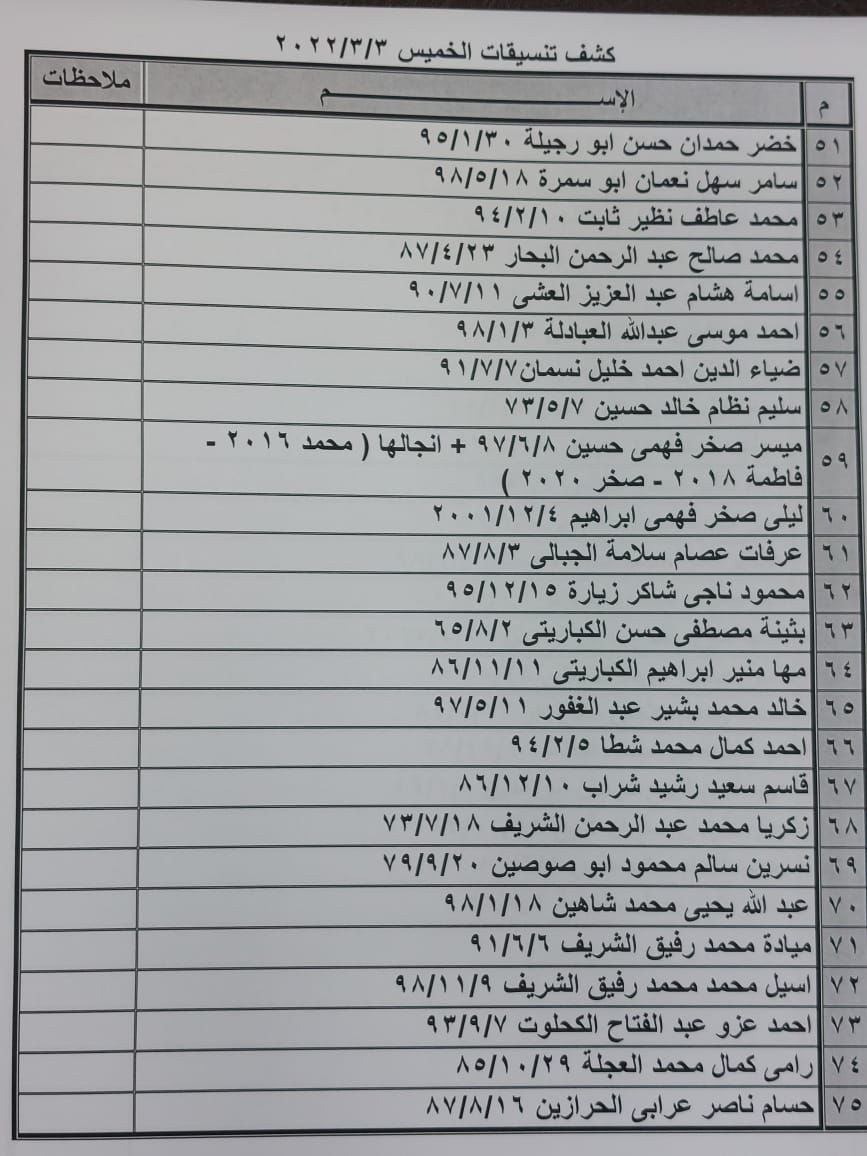 كشف تنسيقات الخميس ٢٠٢٢/٣/٣
م الإســـــــــم ملاحظات
٥١ خضر حمدان حسن ابو رجيلة ٩٥/١/٣٠
٥٢ سامر سهل نعمان ابو سمرة ٩٨/٥/١٨
٥٣ محمد عاطف نظير ثابت ٩٤/٢/١٠
٥٤ محمد صالح عبد الرحمن البحار ٨٧/٤/٢٣
٥٥ اسامة هشام عبد العزيز العشى ٩٠/٧/١١
٥٦ احمد موسى عبدالله العبادلة ٩٨/١/٣
٥٧ ضياء الدين احمد خليل نسمان٩١/٧/٧
٥٨ سليم نظام خالد حسين ٧٣/٥/٧
٥٩ ميسر صخر فهمى حسين ٩٧/٦/٨ + انجالها ( محمد ٢٠١٦ -
فاطمة ٢٠١٨ - صخر ٢٠٢٠ )
٦٠ ليلى صخر فهمى ابراهيم ٢٠٠١/١٢/٤
٦١ عرفات عصام سلامة الجبالى ٨٧/٨/٣
٦٢ محمود ناجى شاكر زيارة ٩٥/١٢/١٥
٦٣ بثينة مصطفى حسن الكباريتى ٦٥/٨/٢
٦٤ مها منير ابراهيم الكباريتى ٨٦/١١/١١
٦٥ خالد محمد بشير عبد الغفور ٩٧/٥/١١
٦٦ احمد كمال محمد شطا ٩٤/٢/٥
٦٧ قاسم سعيد رشيد شراب ٨٦/١٢/١٠
٦٨ زكريا محمد عبد الرحمن الشريف ٧٣/٧/١٨
٦٩ نسرين سالم محمود ابو صوصين ٧٩/٩/٢٠
٧٠ عبد الله يحيى محمد شاهين ٩٨/١/١٨
٧١ ميادة محمد رفيق الشريف ٩١/٦/٦
٧٢ اسيل محمد محمد رفيق الشريف ٩٨/١١/٩
٧٣ احمد عزو عبد الفتاح الكحلوت ٩٣/٩/٧
٧٤ رامى كمال محمد العجلة ٨٥/١٠/٢٩
٧٥ حسام ناصر عرابى الحرازين ٨٧/٨/١٦